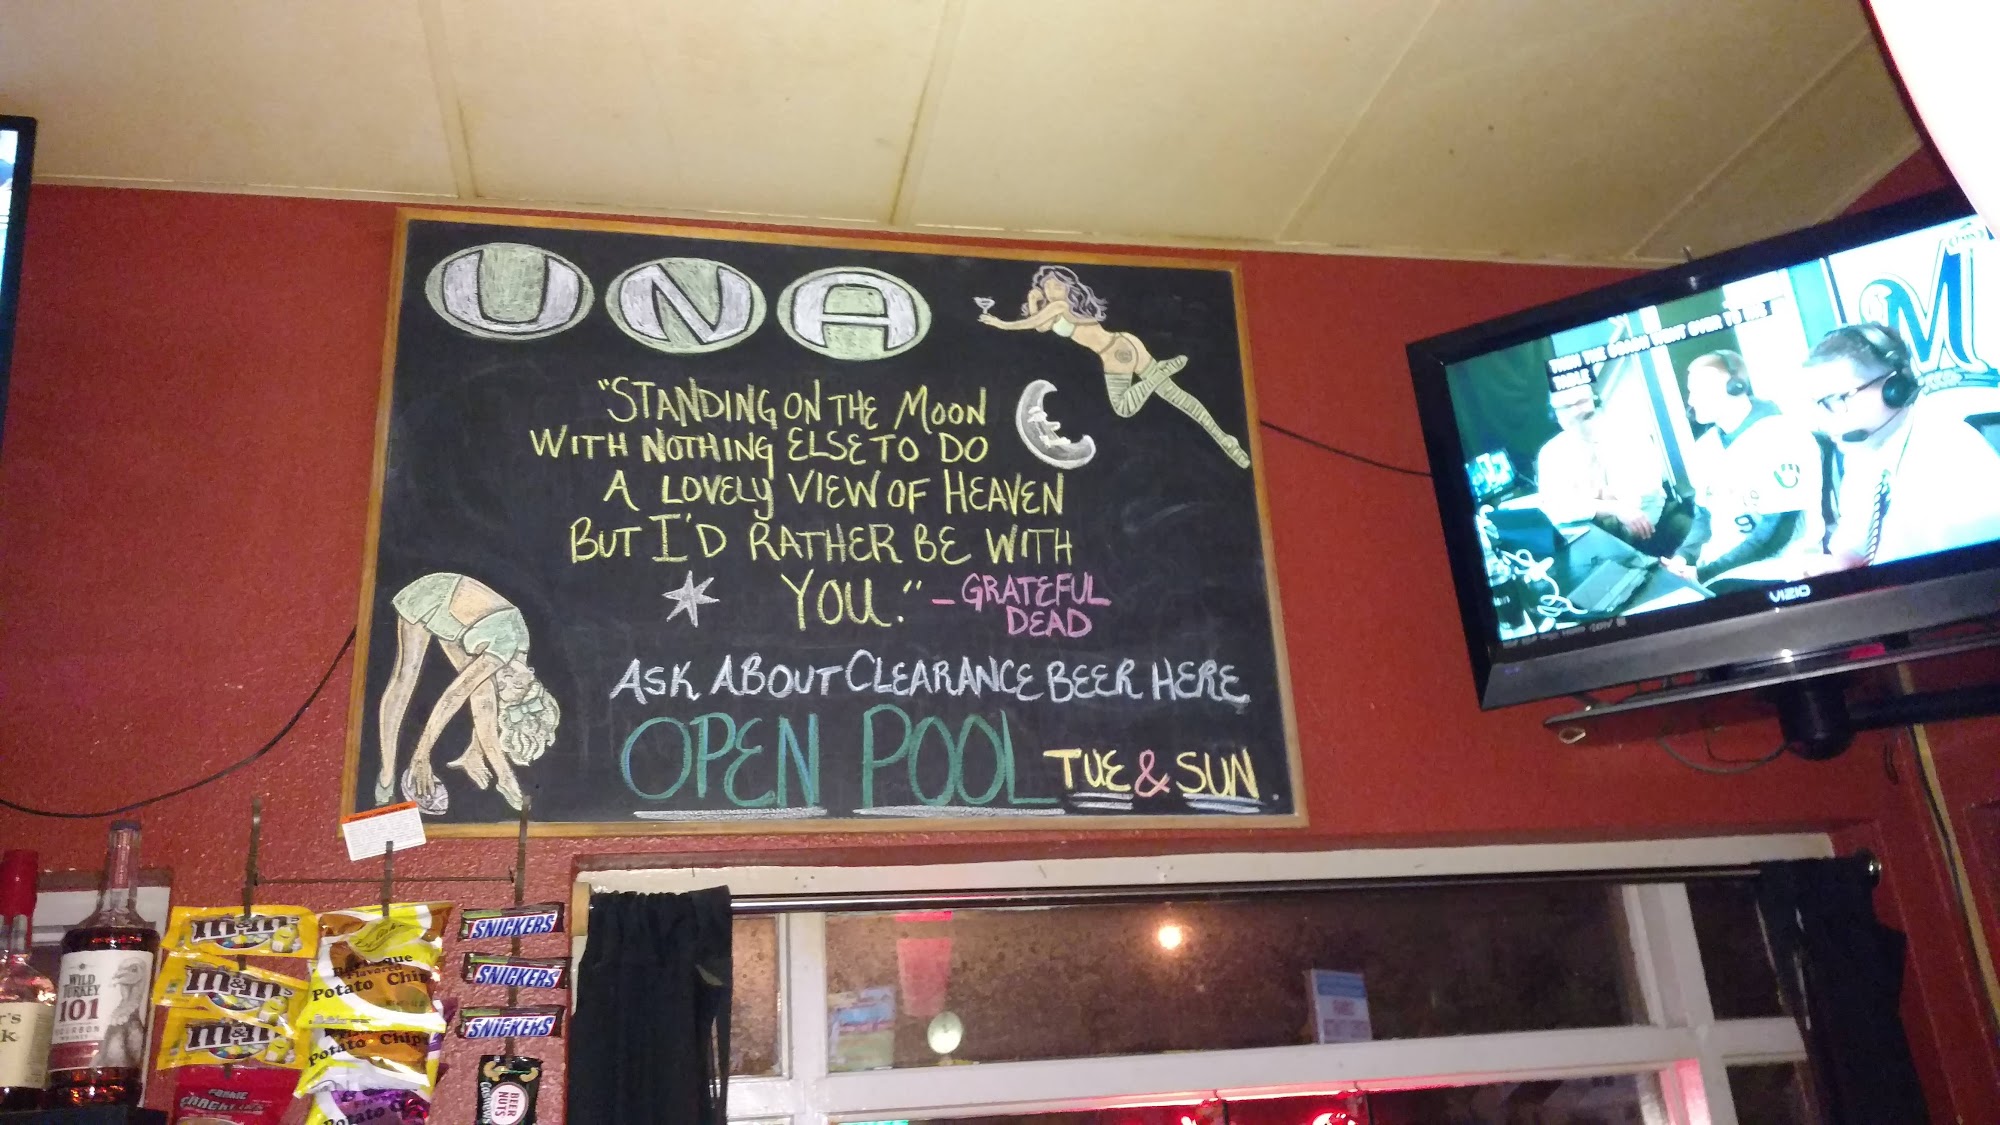 UNA
"STANDING ON THE MOON
WITH NOTHING ELSE TO DO
A LOVELY VIEW OF HEAVEN
BUT I'D RATHER BE WITH
YOU." - GRATEFUL
DEAD
ASK ABOUT CLEARANCE BEER HERE
OPEN POOL TUE & SUN
WHEN THE COACH WENT OVER TO HIS
TABLE
M
VIZIO
WILD
TURKEY
101
BOURBON
m&m's
m&m's
m&m's
Barbeque
Flavored
Potato Chips
Potato Chips
Flavored
Potato C
SNICKERS
SNICKERS
SNICKERS
BEER
NUTS
CASHEWS
r's
k